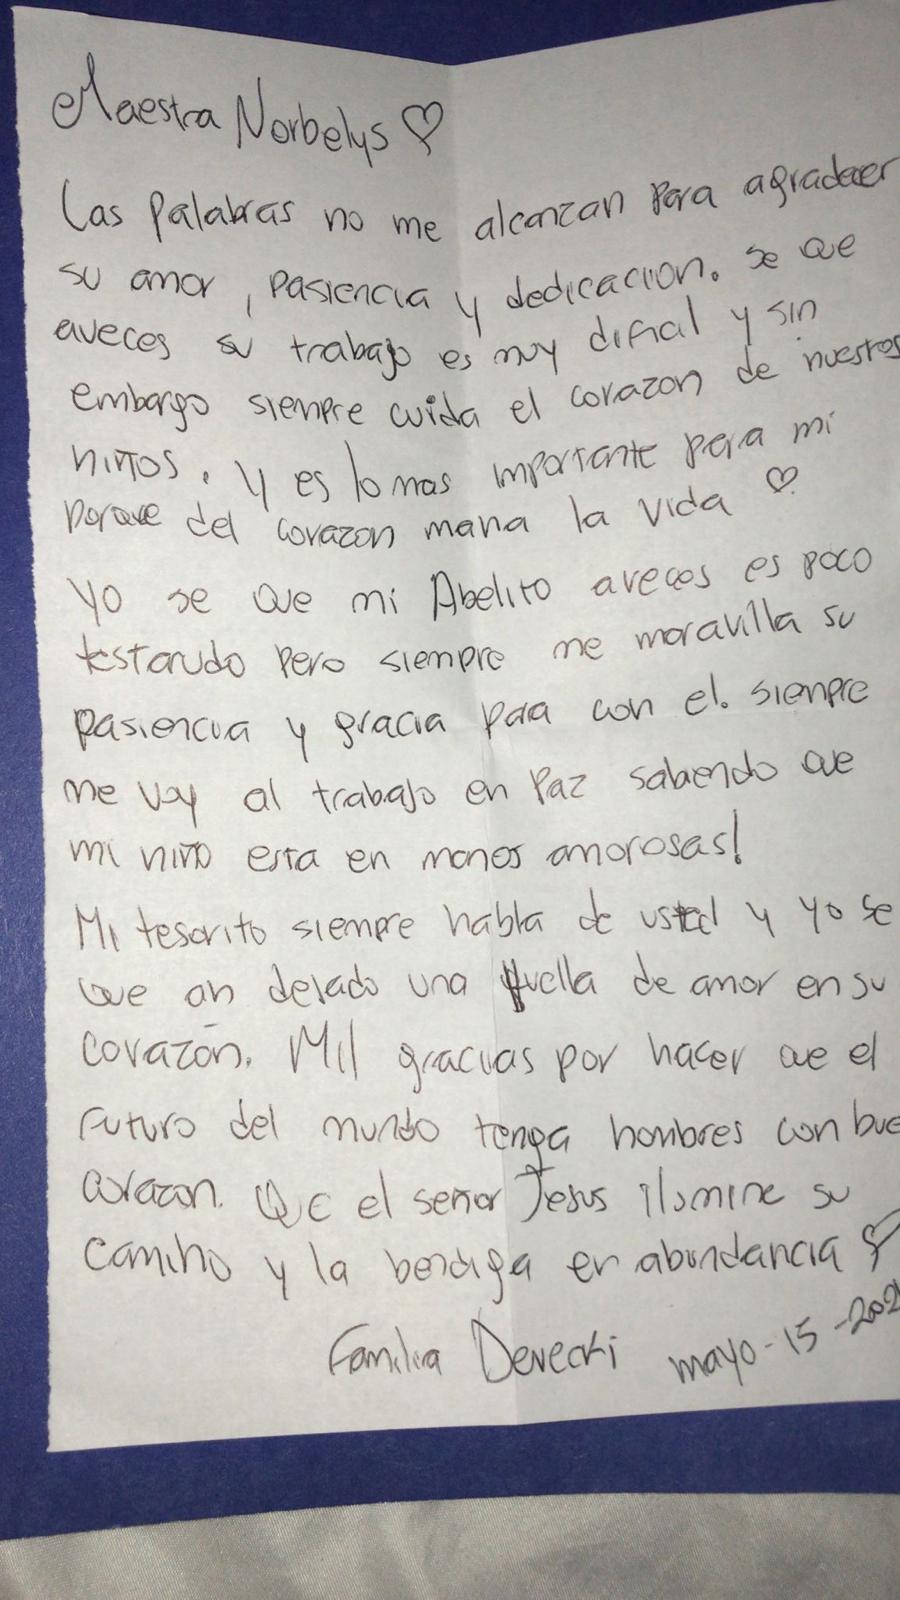 Maestra Norbelys ♡
Las palabras no me alcanzan para agradecer
su amor, pasiencia y dedicacion. se que
aveces su trabajo es muy dificil y sin
embargo siempre cuida el corazon de nuestros
niños. y es lo mas importante para mi
porque del corazon mana la vida ♡
Yo se que mi Abelito aveces es poco
testarudo pero siempre me maravilla su
pasiencia y gracia para con el. siempre
me voy al trabajo en paz sabiendo que
mi niño esta en manos amorosas!
Mi tesorito siempre habla de usted y yo se
que an dejado una huella de amor en su
corazón. Mil gracias por hacer que el
futuro del mundo tenga hombres con bue
corazon. Que el señor Jesus ilumine su
camino y la bendiga en abundancia ♡
Familia Derecki mayo-15-202